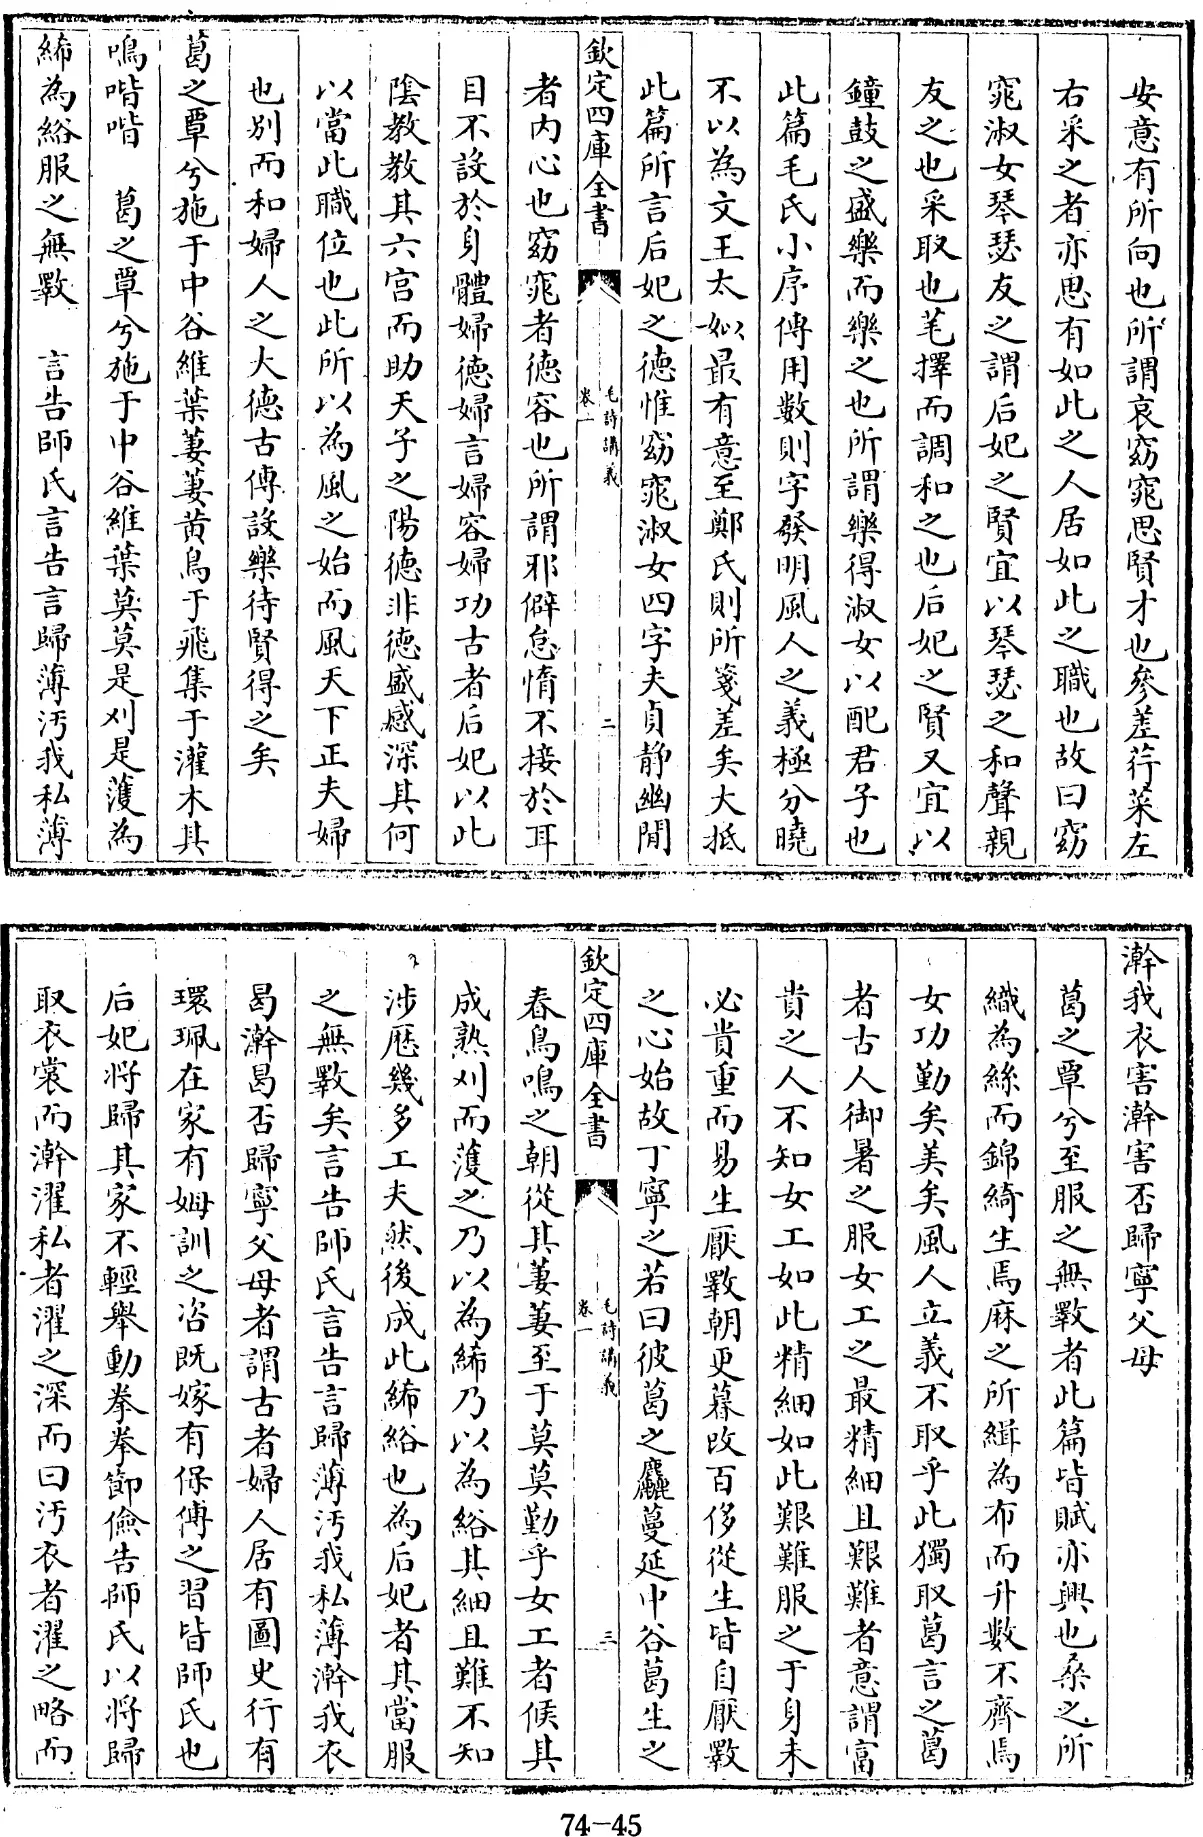 安意有所向也所謂哀窈窕思賢才也參差荇菜左
右采之者亦思有如此之人居如此之職也故曰窈
窕淑女琴瑟友之謂后妃之賢宜以琴瑟之和聲親
友之也采取也芼擇而調和之也后妃之賢又宜以
鐘鼓之盛樂而樂之也所謂樂得淑女以配君子也
此篇毛氏小序傳用數則字發明風人之義極分曉
不以為文王太姒最有意至鄭氏則所箋差矣大抵
此篇所言后妃之德惟窈窕淑女四字夫貞靜幽閒
欽定四庫全書 毛詩講義 卷一 二
者内心也窈窕者德容也所謂邪僻怠惰不接於耳
目不設於身體婦德婦言婦容婦功古者后妃以此
陰教教其六宫而助天子之陽德非德盛感深其何
以當此職位也此所以為風之始而風天下正夫婦
也别而和婦人之大德古傳設樂待賢得之矣
葛之覃兮施于中谷維葉萋萋黄鳥于飛集于灌木其
鳴喈喈 葛之覃兮施于中谷維葉莫莫是刈是濩為
絺為綌服之無斁 言告師氏言告言歸薄汚我私薄
澣我衣害澣害否歸寧父母
葛之覃兮至服之無斁者此篇皆賦亦興也桑之所
織為絲而錦綺生焉麻之所緝為布而升數不齊焉
女功勤矣美矣風人立義不取乎此獨取葛言之葛
者古人御暑之服女工之最精細且艱難者意謂富
貴之人不知女工如此精細如此艱難服之于身未
必貴重而易生厭斁朝更暮改百侈從生皆自厭斁
之心始故丁寧之若曰彼葛之麤蔓延中谷葛生之
欽定四庫全書 毛詩講義 卷一 三
春鳥鳴之朝從其萋萋至于莫莫勤乎女工者候其
成熟刈而濩之乃以為絺乃以為綌其細且難不知
涉歴幾多工夫然後成此絺綌也為后妃者其當服
之無斁矣言告師氏言告言歸薄汚我私薄澣我衣
曷澣曷否歸寧父母者謂古者婦人居有圖史行有
環珮在家有姆訓之咨既嫁有保傅之習皆師氏也
后妃將歸其家不輕舉動拳拳節儉告師氏以將歸
取衣裳而澣濯私者濯之深而曰汚衣者濯之略而
74-45